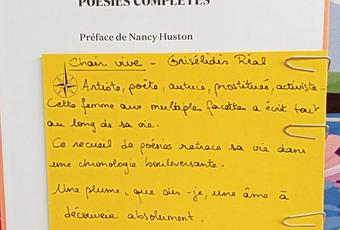 POÉSIES COMPLÈTES
Préface de Nancy Huston
Chair vive - Grisélidis Réal
Artiste, poète, autrice, prostituée, activiste...
Cette femme aux multiples facettes a écrit tout
au long de sa vie.
Ce recueil de poésies retrace sa vie dans
une chronologie bouleversante.
Une plume, que dis-je, une âme à
découvrir absolument.